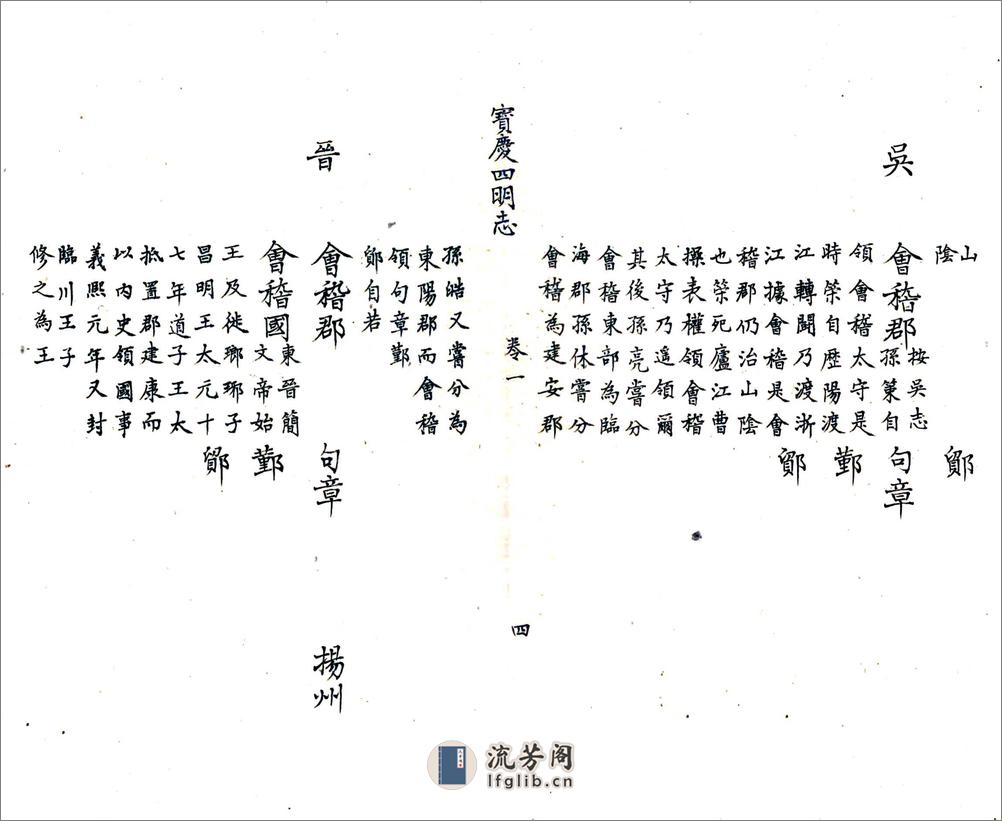 山
陰
鄮
吳
會稽郡
按吳志
孫策自
句章
領會稽太守是
時榮自歷陽渡
鄞
江轉聞乃渡浙
江據會稽是會
鄮
稽郡仍治山陰
也榮死廬江曹
操表權領會稽
太守乃遥領爾
其後孫亮嘗分
會稽東部為臨
海郡孫休嘗分
會稽為建安郡
寶慶四明志
卷一
四
孫皓又嘗分為
東陽郡而會稽
領句章鄞
鄮自若
晉
會稽郡
句章
揚州
會稽國
東晉簡
文帝始
鄞
王及徙瑯琊子
昌明王太元十
鄮
七年道子王太
抵置郡建康而
以内史領國事
義熙元年又封
臨川王子
修之為王
流芳阁
lfglib.cn